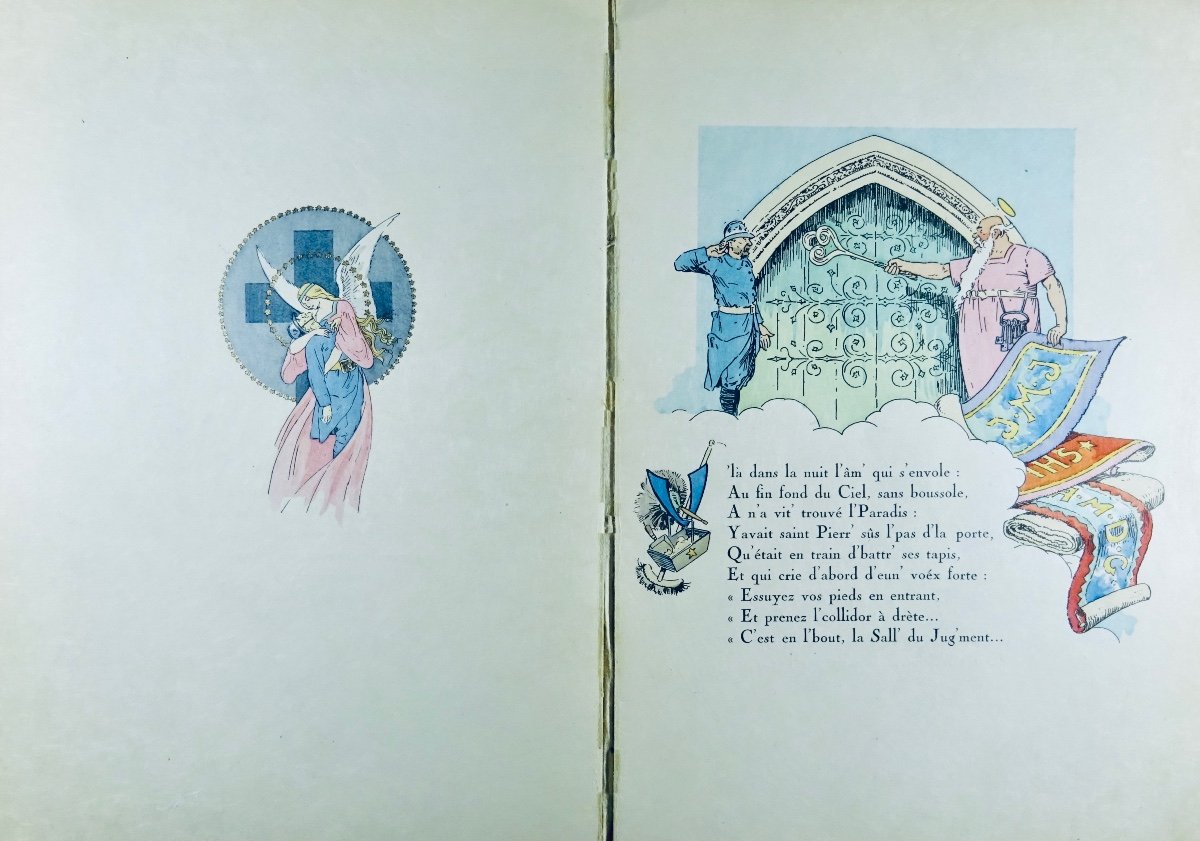 J. M. J.
IHS
A. M. D. G.
V'là dans la nuit l'âm' qui s'envole :
Au fin fond du Ciel, sans boussole,
A n'a vit' trouvé l'Paradis :
Yavait saint Pierr' sûs l'pas d'la porte,
Qu'était en train d'battr' ses tapis,
Et qui crie d'abord d'eun' voéx forte :
« Essuyez vos pieds en entrant,
« Et prenez l'collidor à drète...
« C'est en l'bout, la Sall' du Jug'ment...